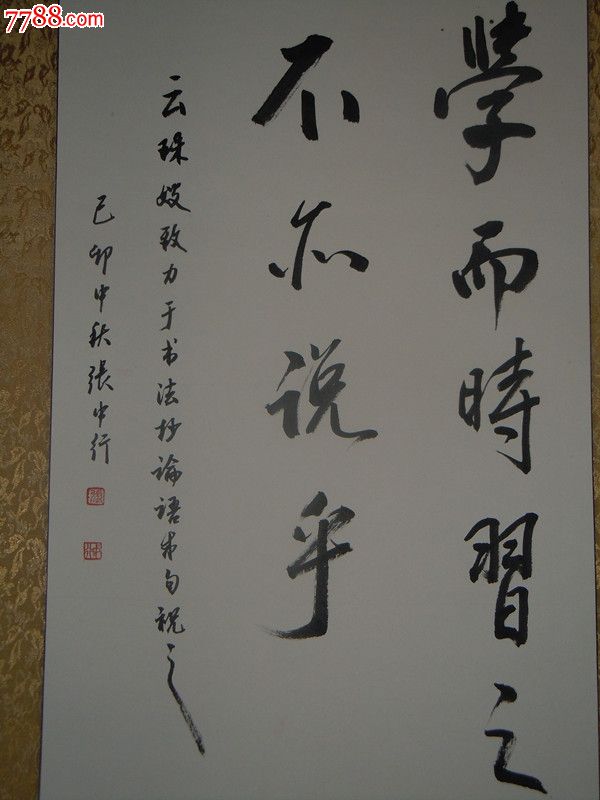 7788.com
學而時習之
不亦说乎
云珠嫂致力于书法抄論语成句祝之
己卯中秋張中行